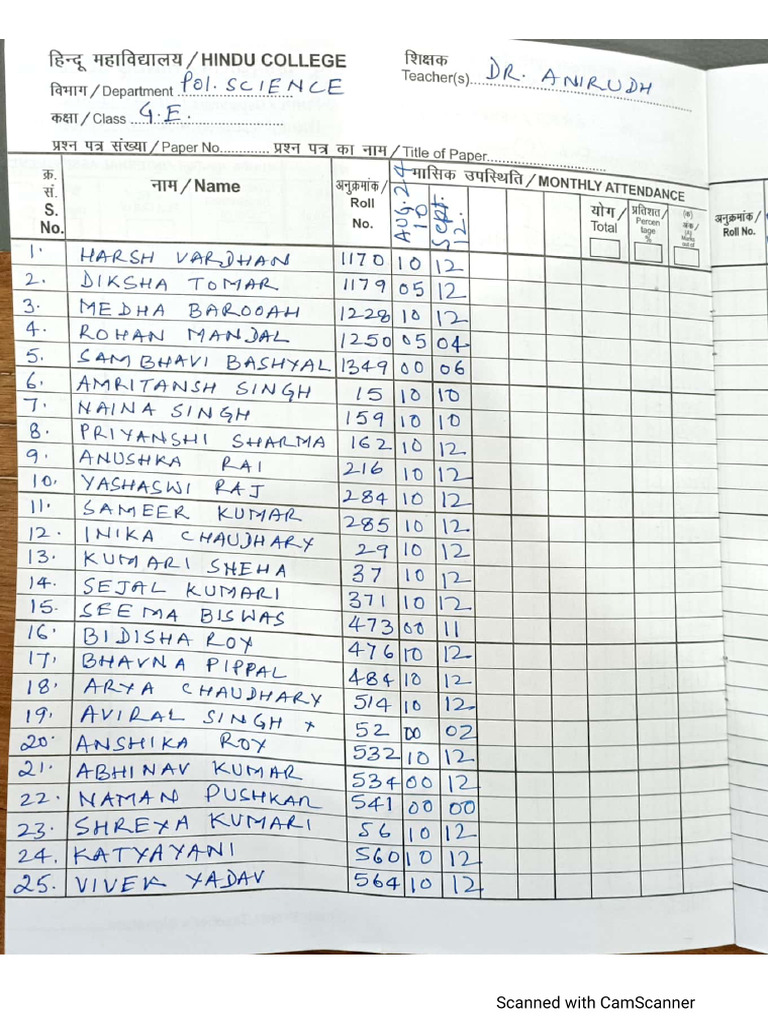 हिन्दू महाविद्यालय / HINDU COLLEGE
शिक्षक
Teacher(s) DR. ANIRUDH
विभाग / Department Pol. SCIENCE
कक्षा / Class G.E.
प्रश्न पत्र संख्या / Paper No............. प्रश्न पत्र का नाम / Title of Paper..............................
क्र. सं. S. No. नाम / Name अनुक्रमांक / Roll No. मासिक उपस्थिति / MONTHLY ATTENDANCE
AUG. 24 10 Sept. 12. योग / Total प्रतिशत / Percentage % (क) अंक / (A) Marks out of
अनुक्रमांक / Roll No.
1. HARSH VARDHAN 1170 10 12
2. DIKSHA TOMAR 1179 05 12
3. MEDHA BAROOAH 1228 10 12
4. ROHAN MANDAL 1250 05 04
5. SAMBHAVI BASHYAL 1349 00 06
6. AMRITANSH SINGH 15 10 10
7. NAINA SINGH 159 10 10
8. PRIYANSHI SHARMA 162 10 12
9. ANUSHKA RAI 216 10 12
10. YASHASWI RAJ 284 10 12
11. SAMEER KUMAR 285 10 12
12. INIKA CHAUDHARY 29 10 12
13. KUMARI SNEHA 37 10 12
14. SEJAL KUMARI 371 10 12
15. SEEMA BISWAS 473 00 11
16. BIDISHA ROY 476 10 12
17. BHAVNA PIPPAL 484 10 12
18. ARYA CHAUDHARY 514 10 12
19. AVIRAL SINGH x 52 00 02
20. ANSHIKA ROY 532 10 12
21. ABHINAV KUMAR 534 00 12
22. NAMAN PUSHKAR 541 00 00
23. SHREYA KUMARI 56 10 12
24. KATYAYANI 560 10 12
25. VIVEK YADAV 564 10 12
Scanned with CamScanner